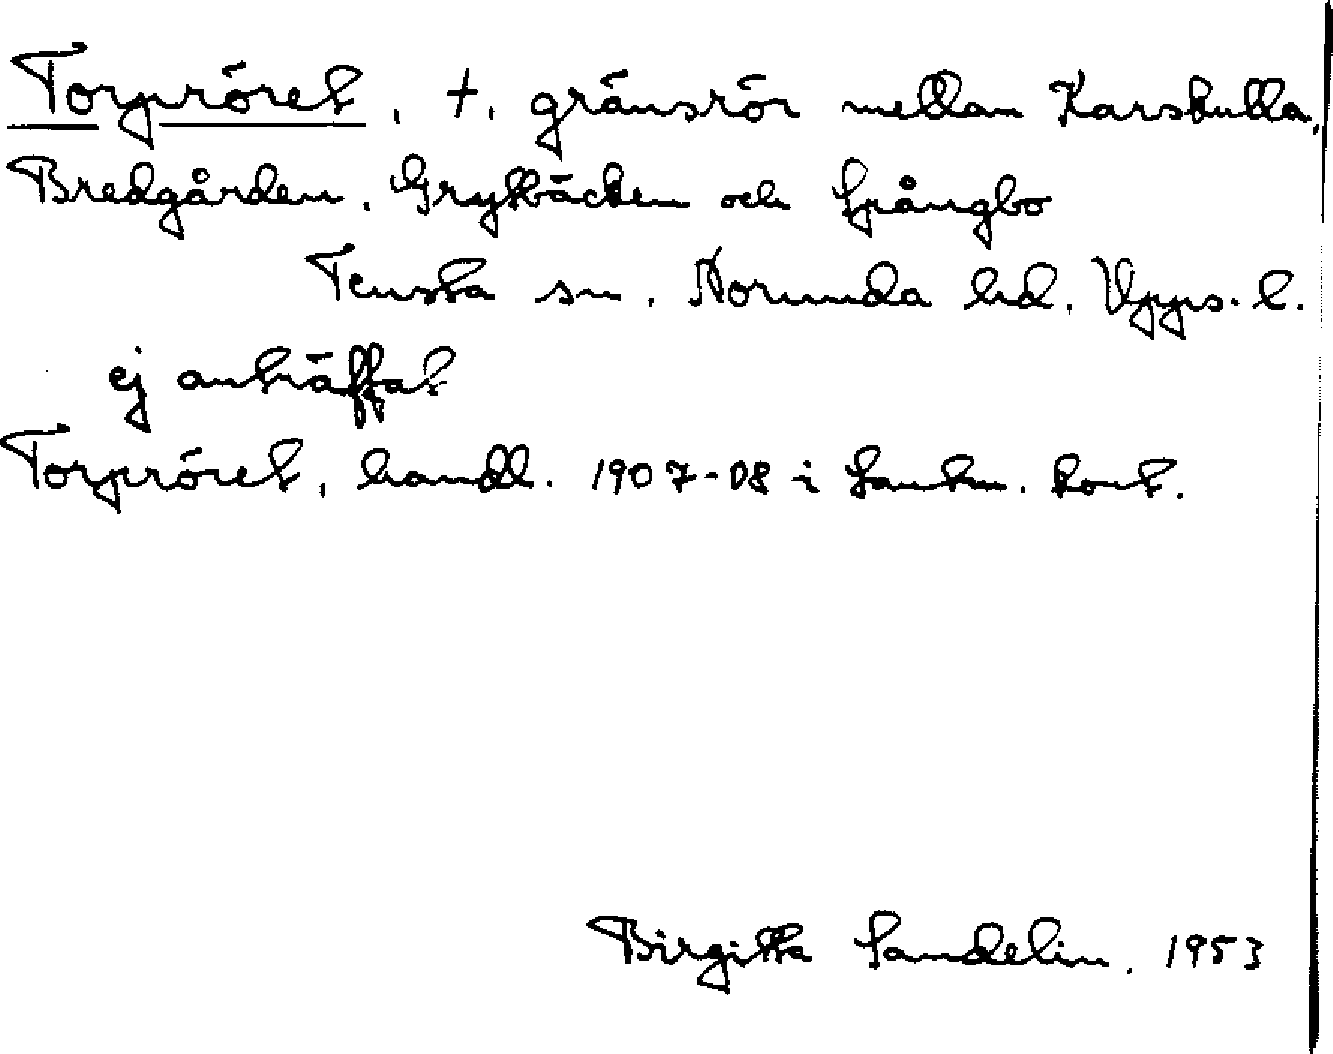 Torpröret, +, gränsrör mellan Karskulla,
Bredgården, Grytbäcken och Språngbo
Tensta sn, Norunda hd, Upps. l.
ej anträffat
Torpröret, handl. 1907-08 i Lantm. kont.
Birgitta Sandelin, 1953